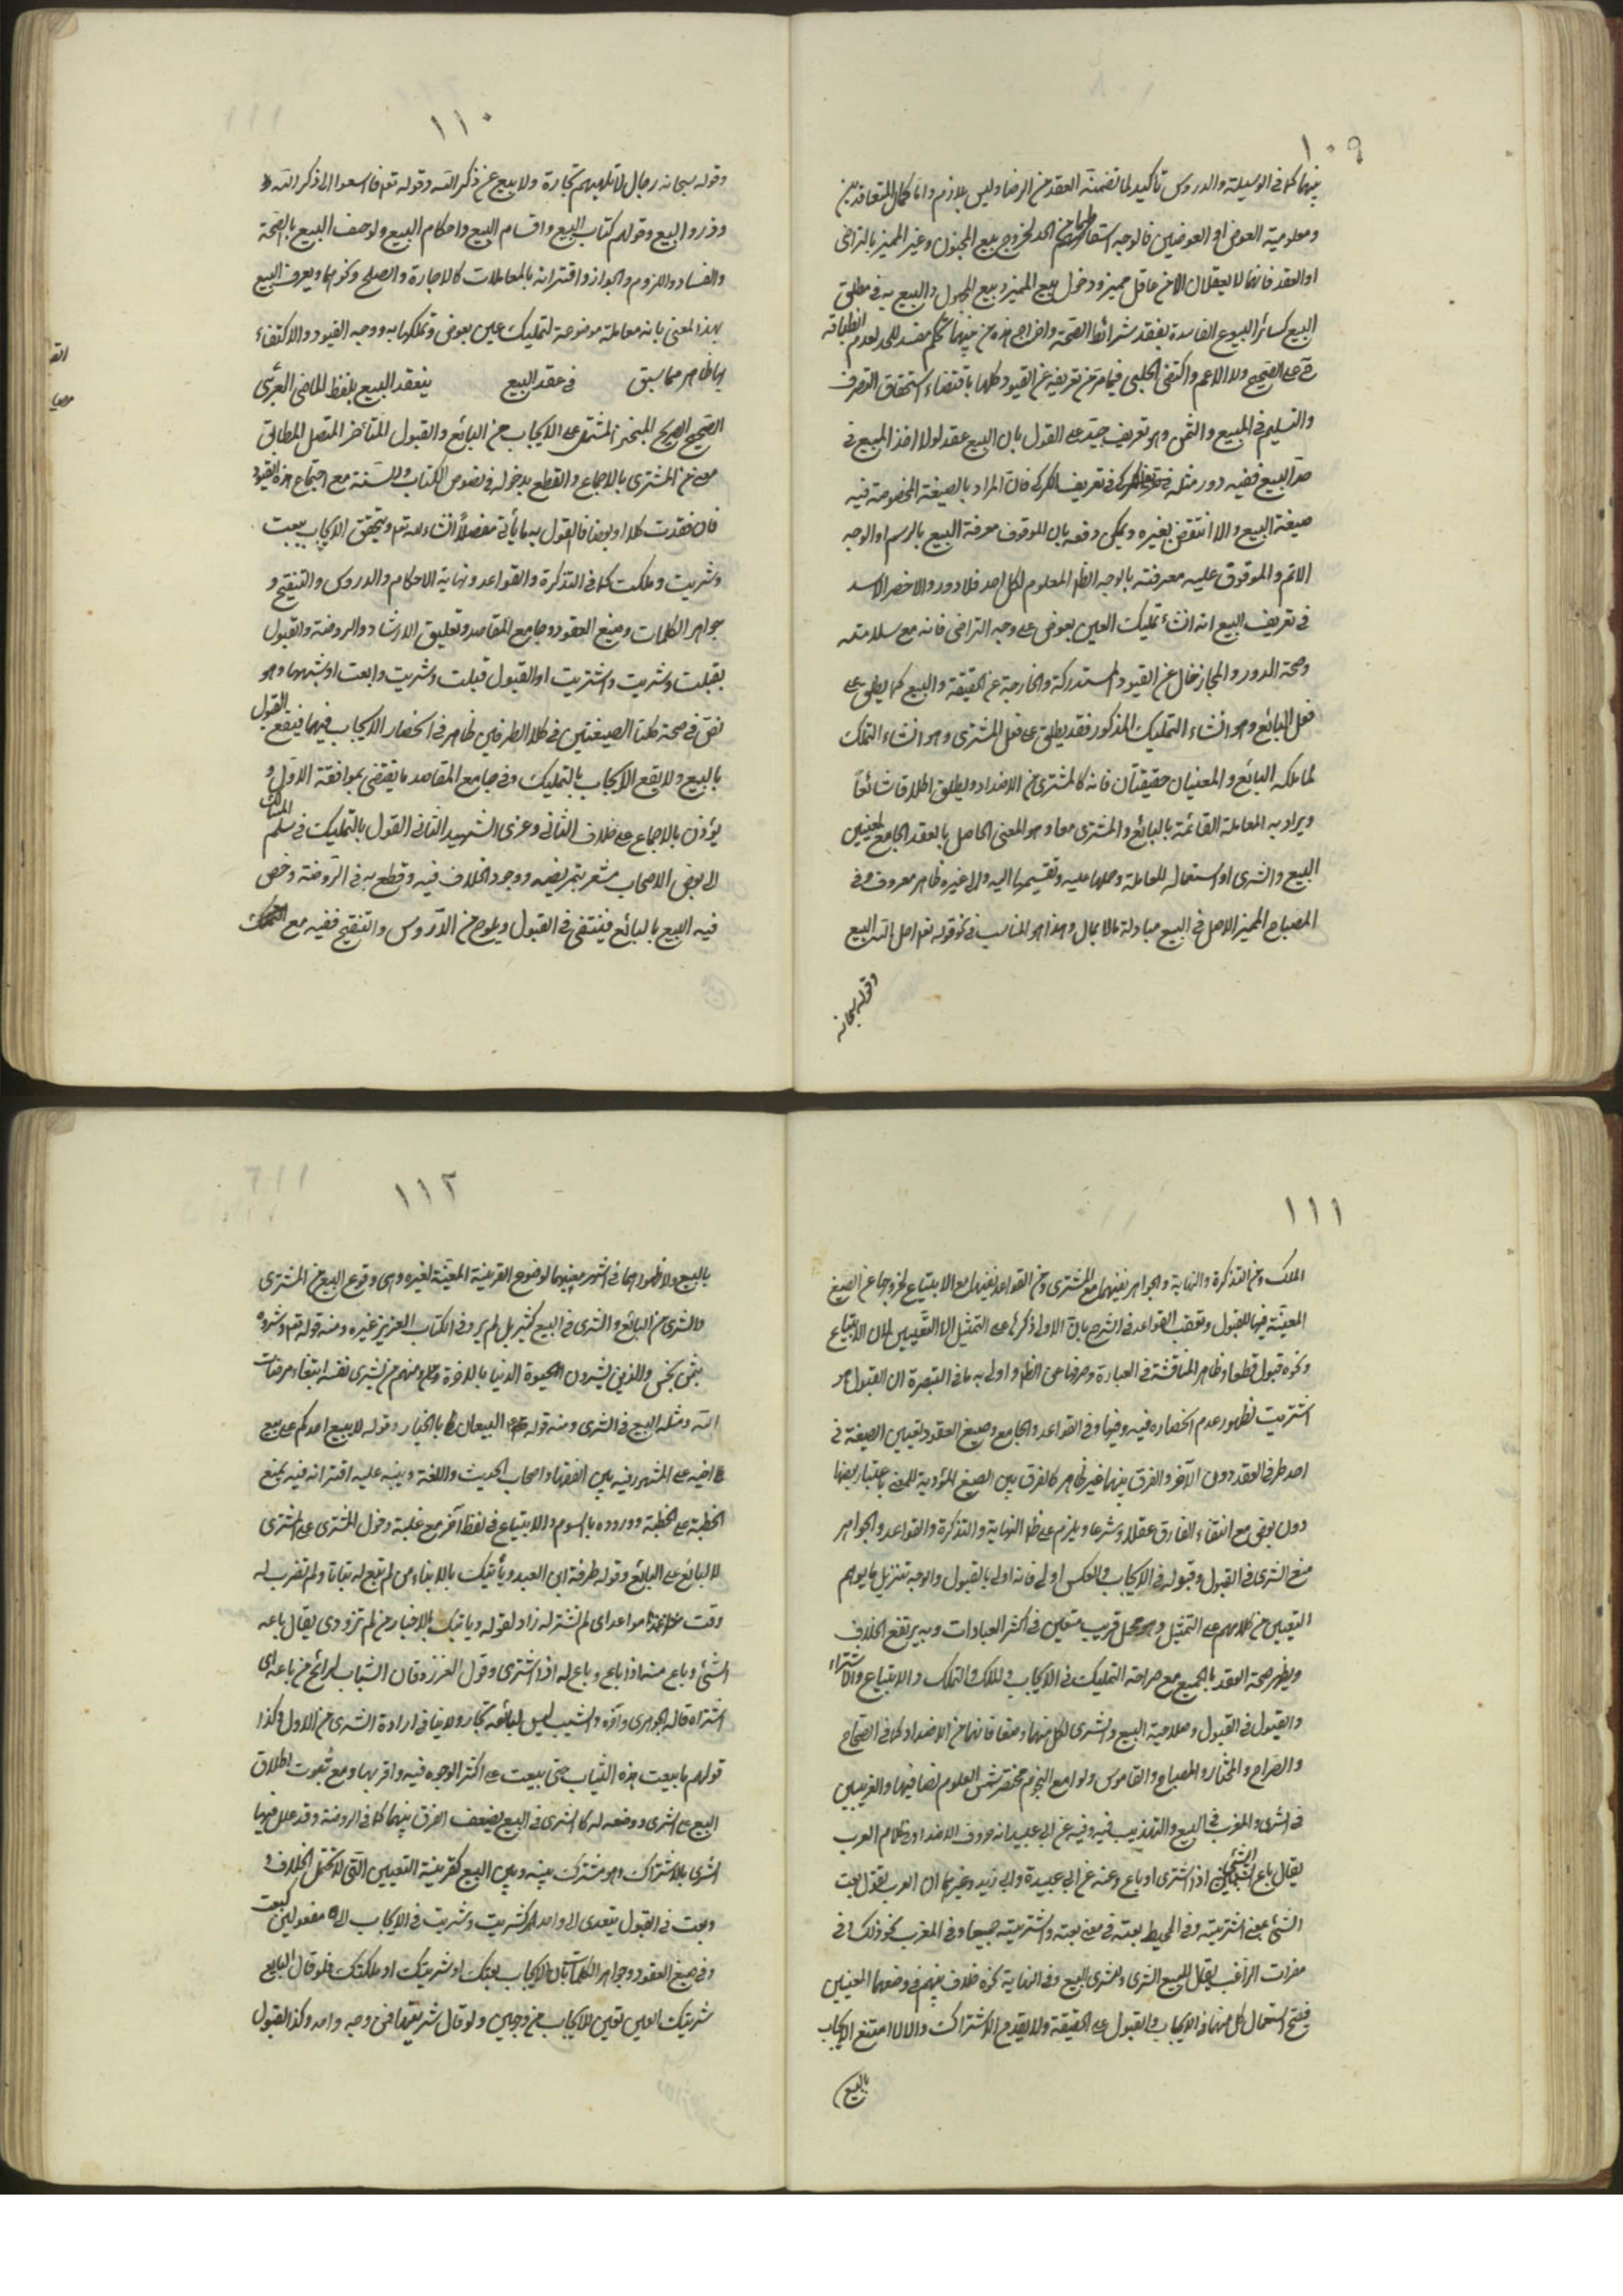 ١٠٩
بينهما كما في الوسيلة والدروس تأكيد لما تضمنه العقد من الرضا وليس بلازم واما كمال المتعاقدين
ومعلومية العوض او العوضين فالوجه اسقاطهما من الحد لخروج بيع المجنون وغير المميز بالتراضي
او العقد فانهما لا يعقلان الا من عاقل مميز ودخول بيع المميز وبيع المجهول والبيع به في مطلق
البيع كسائر البيوع الفاسدة بفقد شرائط الصحة واخراج هذه من بينها تحكم مفسد للحد لعدم انطباقه
ح على الصحيح ولا الاعم واكتفى الحلبي فيما مر من تعريفه عن القيود كلها باقتضاء استحقاق التصرف
والتسليم في المبيع والثمن وهو تعريف جيد على القول بان البيع عقد لولا اخذ المبيع في
حد البيع ففيه دور مثله في تعريف الكركي فان المراد بالصيغة المخصوصة فيه
صيغة البيع والا انتقض بغيره ويمكن دفعه بان الموقوف معرفة البيع بالرسم او الوجه
الاتم والموقوف عليه معرفته بالوجه الظ المعلوم لكل احد فلا دور والاخصر الاسد
في تعريف البيع انه انشاء تمليك العين بعوض على وجه التراضي فانه مع سلامته
وصحة الدور والمجاز خال عن القيود المستدركة والخارجة عن الحقيقة والبيع كما يطلق على
فعل البائع وهو انشاء التمليك المذكور فقد يطلق على فعل المشتري وهو انشاء التملك
لما ملكه البائع والمعنيان حقيقتان فانه كالمشتري من الاضداد ويطلق اطلاقا شائعا
ويراد به المعاملة القائمة بالبائع والمشتري معا وهو المعنى الحاصل بالعقد الجامع لمعنيين
البيع والشرى او استعماله للمعاملة وحملها عليه وتقسيمها اليه والى غيره ظاهر معروف وفي
المصباح المنير الاصل في البيع مبادلة مال بمال وهذا هو المناسب في نحو قوله تعالى احل الله البيع
وقوله سبحانه
١١٠
وقوله سبحانه رجال لا تلهيهم تجارة ولا بيع عن ذكر الله وقوله تعه فاسعوا الى ذكر الله
وذروا البيع وقولهم كتاب البيع واقسام البيع واحكام البيع ولوصف البيع بالصحة
والفساد واللزوم والجواز واقترانه بالمعاملات كالاجارة والصلح ونحوهما ويعرف البيع
بهذا المعنى بانه معاملة موضوعة لتمليك عين بعوض وتملكها به ووجه القيود والاكتفاء
بها ظاهر مما سبق في عقد البيع ينعقد البيع بلفظ الماضي العربي
الصحيح الصريح المنجز المشتمل على الايجاب من البائع والقبول المتأخر المتصل المطابق
من المشتري بالاجماع والقطع بدخوله في نصوص الكتاب والسنة مع اجتماع هذه القيود
فان فقدت كلا او بعضا فالقول به ما يأتي مفصلا انشاء الله تعه ويتحقق الايجاب ببعت
وشريت وملكت كما في التذكرة والقواعد ونهاية الاحكام والدروس والتنقيح و
جواهر الكلمات وصيغ العقود وجامع المقاصد وتعليق الارشاد والروضة والقبول
بقبلت وشريت واشتريت او القبول قبلت وشريت وابعت او شبهها وهو
نص في صحة كلتا الصيغتين في كلا الطرفين ظاهر في انحصار الايجاب فيهما فيقع القبول
بالبيع ولا يقع الايجاب بالتمليك وفي جامع المقاصد ما يقتضي بموافقة الاول و
يؤذن بالاجماع على خلاف الثاني وعزى الشهيد الثاني القول بالتمليك في سلم المسالك
الى بعض الاصحاب مشعر بتمريضه ووجود الخلاف فيه وقطع به في الروضة وخص
فيه البيع بالبائع فينتفي في القبول ويلوح من الدروس والتنقيح ففيه مع التملك
١١١
الملك ومن التذكرة والنهاية والجواهر نفيهما مع المشتري ومن القواعد نفيهما مع الابتياع لخروجها عن الصيغ
المعينة فيها للقبول وتعقب القواعد في الشرح بان الاولى ذكرها على التمثيل لا التعيين لان الابتياع
ونحوه قبول قطعا وظاهر المناقشة في العبارة وصرفها عن الظ واولى به ما في التبصرة ان القبول هو
اشتريت لظهور عدم انحصاره فيه وفيها وفي القواعد والجامع وصيغ العقود تعيين الصيغة في
احد طرفي العقد دون الآخر والفرق بينهما غير ظاهر كالفرق بين الصيغ المؤدية للمعنى باعتبار بعضها
دون بعض مع انتفاء الفارق عقلا وشرعا ويلزم على ظ النهاية والتذكرة والقواعد والجواهر
منع الشرى في القبول وقبوله في الايجاب والعكس اولى فانه اولى بالقبول والوجه تنزيل ما يوهم
التعيين من كلامهم على التمثيل وهو محمل قريب متعين في اكثر العبادات وبه يرتفع الخلاف
ويظهر صحة العقد بالجميع مع صراحة التمليك في الايجاب والملك والتملك والابتياع والاشتراء
والقبول في القبول وصلاحية البيع والشرى لكل منهما وضعا فانهما من الاضداد كما في الصحاح
والصراح والمختار والمصباح والقاموس ولوامع النجوم مختصر شمس العلوم نصا فيهما والغريبين
في الشرى والمغرب في البيع والتهذيب فيه وفيه عن ابي عبيد انه حروف الاضداد في كلام العرب
يقال باع الشيئ اذا اشترى او باع وعنه عن ابي عبيدة وابي زيد وغيرهما ان العرب تقول بعت
الشئ بمعنى اشتريته وفي المحيط بعته في معنى بعته واشتريته جميعا وفي المغرب نحو ذلك وفي
مفردات الراغب يقال للبيع الشرى وللشرى البيع وفي النهاية نحوه خلاف بينهم في وضعهما المعنيين
فيصح استعمال كل منهما في الايجاب والقبول على الحقيقة ولا يقدح الاشتراك والا لامتنع الايجاب
بالبيع
١١٢
بالبيع ولا ظهورهما في اشهر معنييهما لوضوح القرينة المعينة لغيره وهي وقوع البيع من المشتري
والشرى من البائع والشرى في البيع كثير بل لم يرد في الكتاب العزيز غيره ومنه قوله تعه وشروه
بثمن بخس والذين يشرون الحيوة الدنيا بالاخرة ومنهم من يشرى نفسه ابتغاء مرضات
الله ومثله البيع في الشرى ومنه قوله البيعان بالخيار وقوله لا يبيع احدكم على بيع
اخيه على المشهور فيه بين الفقهاء واصحاب الحديث واللغة وينبه عليه اقترانه فيه بمنع
الخطبة على الخطبة ووروده بالسوم والابتياع في لفظ آخر مع غلبة دخول المشتري على المشتري
لا البائع على البائع وقوله طرفة ابن العبد ويأتيك بالانباء من لم تبع له بتاتا ولم تضرب له
وقت موعد اي لم تشتر له زاد لقوله ويأتيك بالاخبار من لم تزودي يقال باعه
الشئ وباع منه اذا باع وباع له اذا اشترى وقول الفرزدق ان الشباب لرابح من باعه اي
اشتراه قاله الجوهري وآخره والشيب ليس لبائعه تجار ولا ينافي ارادة الشرى من الاول وكذا
قولهم ما بيعت هذه الثياب حتى بيعت على اكثر الوجوه فيه واقربها ومع ثبوت اطلاق
البيع على الشرى ووضعه له كالشرى في البيع يضعف الفرق بينهما كما في الروضة وقد علل فيها
الشرى بالاشتراك وهو مشترك بينه وبين البيع كقرينة التعيين التي لا تحتمل الخلاف و
وبعت في القبول يتعدى الى واحد كشريت وشريت في الايجاب الى مفعولين كبعت
وفي صيغ العقود وجواهر الكلمات بان الايجاب بعتك او شريتك او ملكتك فلو قال البايع
شريتك العين تعين للايجاب من وجهين ولو قال شريتها فمن وجه واحد وكذا القبول